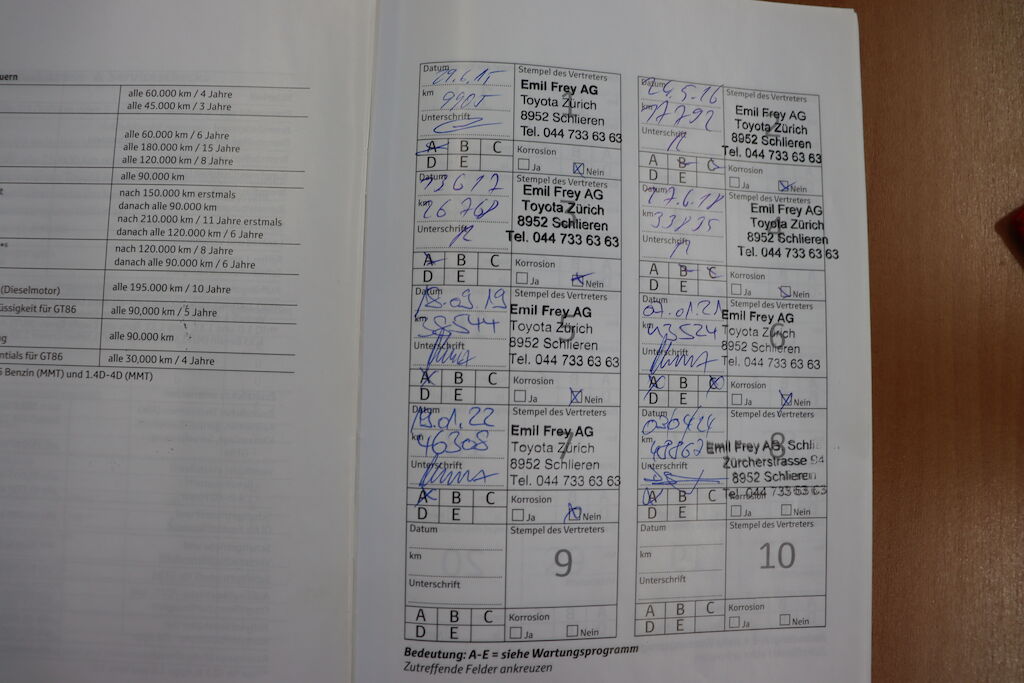 uern
alle 60.000 km / 4 Jahre
alle 45.000 km / 3 Jahre
alle 60.000 km / 6 Jahre
alle 180.000 km / 15 Jahre
alle 120.000 km / 8 Jahre
alle 90.000 km
t
nach 150.000 km erstmals
danach alle 90.000 km
nach 210.000 km / 11 Jahre erstmals
danach alle 120.000 km / 6 Jahre
nach 120.000 km / 8 Jahre
danach alle 90.000 km / 6 Jahre
(Dieselmotor)
alle 195.000 km / 10 Jahre
üssigkeit für GT86
alle 90,000 km / 5 Jahre
ng
alle 90.000 km
entials für GT86
alle 30,000 km / 4 Jahre
Benzin (MMT) und 1.4D-4D (MMT)
Datum 29.6.15
km 9905
Unterschrift
Stempel des Vertreters
1
Emil Frey AG
Toyota Zürich
8952 Schlieren
Tel. 044 733 63 63
A B C
D E
Korrosion
Ja Nein
Datum 24.5.16
km 17792
Unterschrift
Stempel des Vertreters
2
Emil Frey AG
Toyota Zürich
8952 Schlieren
Tel. 044 733 63 63
A B C
D E
Korrosion
Ja Nein
Datum 13 6 17
km 26 768
Unterschrift
Stempel des Vertreters
3
Emil Frey AG
Toyota Zürich
8952 Schlieren
Tel. 044 733 63 63
A B C
D E
Korrosion
Ja Nein
Datum 17.6.18
km 33835
Unterschrift
Stempel des Vertreters
4
Emil Frey AG
Toyota Zürich
8952 Schlieren
Tel. 044 733 63 63
A B C
D E
Korrosion
Ja Nein
Datum 18.03 19
km 38544
Unterschrift
Stempel des Vertreters
5
Emil Frey AG
Toyota Zürich
8952 Schlieren
Tel. 044 733 63 63
A B C
D E
Korrosion
Ja Nein
Datum 01.21
km 43524
Unterschrift
Stempel des Vertreters
6
Emil Frey AG
Toyota Zürich
8952 Schlieren
Tel. 044 733 63 63
A B C
D E
Korrosion
Ja Nein
Datum 19.01.22
km 46308
Unterschrift
Stempel des Vertreters
7
Emil Frey AG
Toyota Zürich
8952 Schlieren
Tel. 044 733 63 63
A B C
D E
Korrosion
Ja Nein
Datum 030424
km 48867
Unterschrift
Stempel des Vertreters
8
Emil Frey AG, Schli
Zürcherstrasse 94
8952 Schlieren
Tel. 044 733 63 63
A B C
D E
Korrosion
Ja Nein
Datum
km
Unterschrift
Stempel des Vertreters
9
A B C
D E
Korrosion
Ja Nein
Datum
km
Unterschrift
Stempel des Vertreters
10
A B C
D E
Korrosion
Ja Nein
Bedeutung: A-E = siehe Wartungsprogramm
Zutreffende Felder ankreuzen